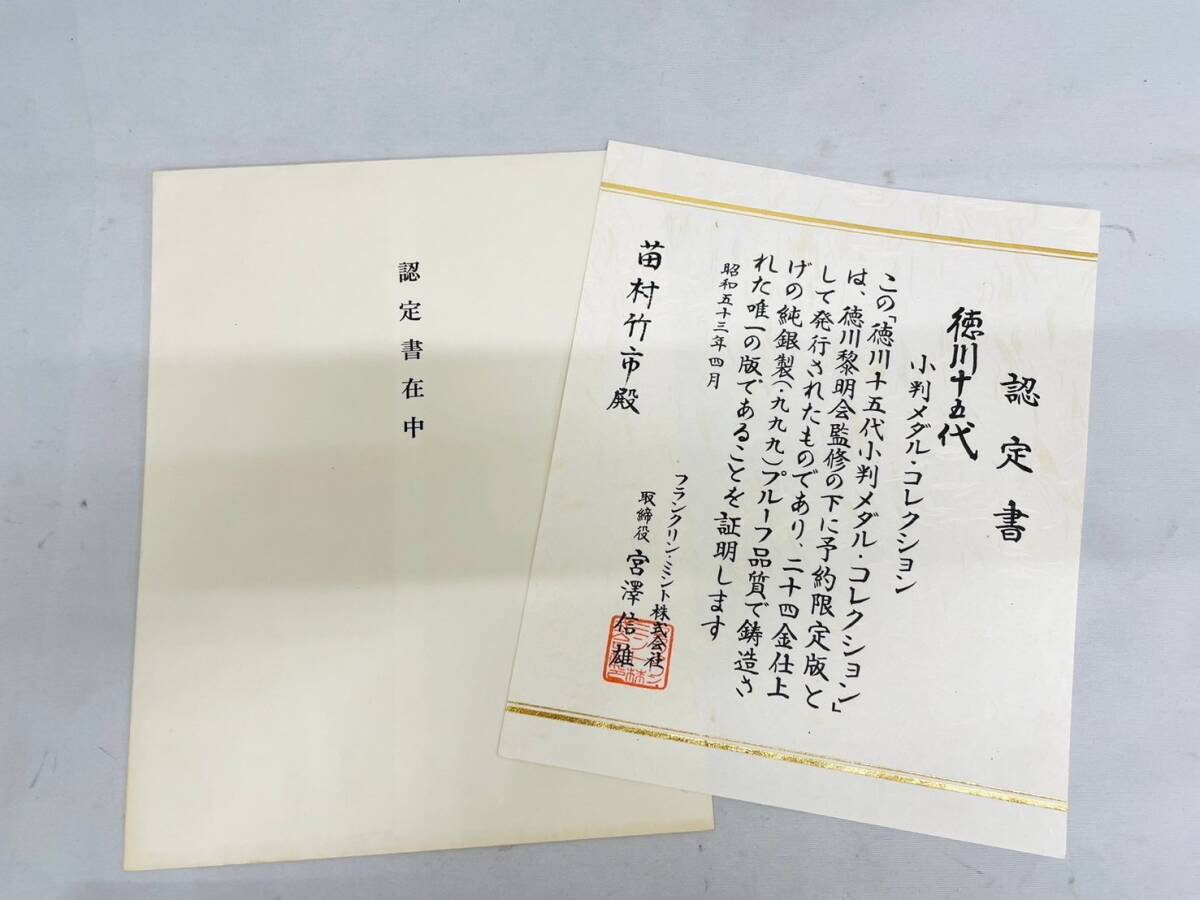 認定書在中
認定書
徳川十五代
小判メダル・コレクション
この「徳川十五代小判メダル・コレクション」
は、徳川黎明会監修の下に予約限定版と
して発行されたものであり、二十四金仕上
げの純銀製(・九九九)プルーフ品質で鋳造さ
れた唯一の版であることを証明します
昭和五十三年四月
フランクリン・ミント株式会社
取締役 宮澤信雄
苗村竹市殿